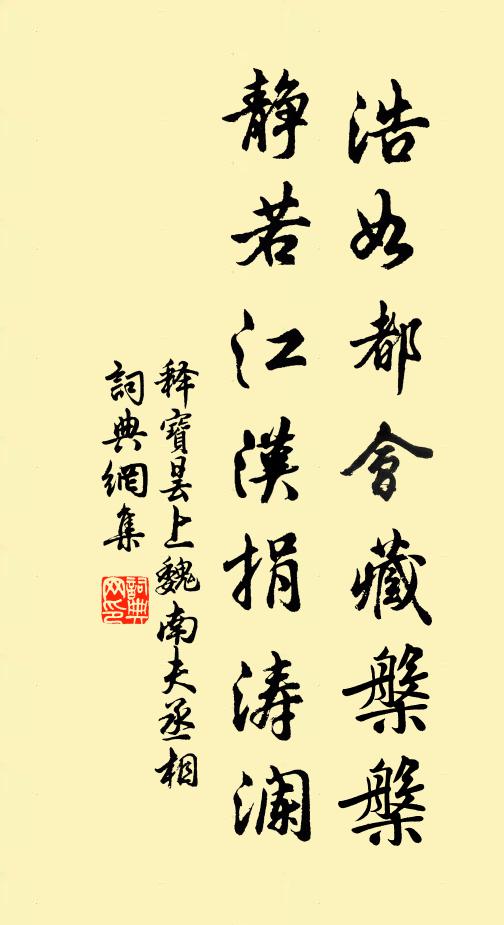 浩如都會藏槃槃
静若江漢捐濤瀾
釋寶曇上魏南夫丞相
詞典網集